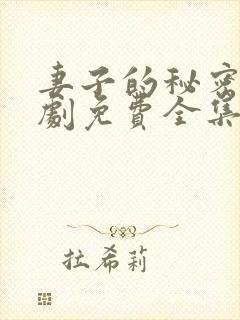 妻子的秘密
劇免费全集
拉希莉